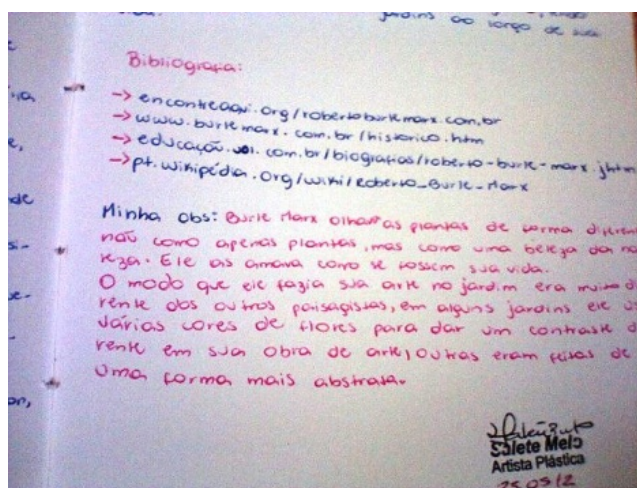 jardins ao longo de sua
Bibliografia:
-> encontreaqui.org/robertoburlemarx.com.br
-> www.burlemarx.com.br/historico.htm
-> educação.uol.com.br/biografias/roberto-burle-marx.jhtm
-> pt.wikipédia.org/wiki/Roberto_Burle-Marx
Minha obs: Burle Marx olhava as plantas de forma diferen
não como apenas plantas, mas como uma beleza da na
reza. Ele as amava como se fossem sua vida.
O modo que ele fazia sua arte no jardim era muito di
rente dos outros paisagistas, em alguns jardins ele u
várias cores de flores para dar um contraste d
rente em sua obra de arte, outras eram feitas de
uma forma mais abstrata.
Salete Melo
Artista Plástica
25 05 12